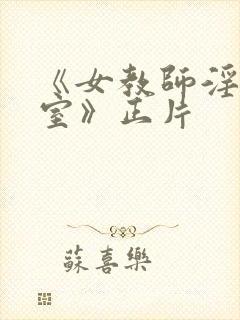 《女教师淫
室》正片
蘇喜樂